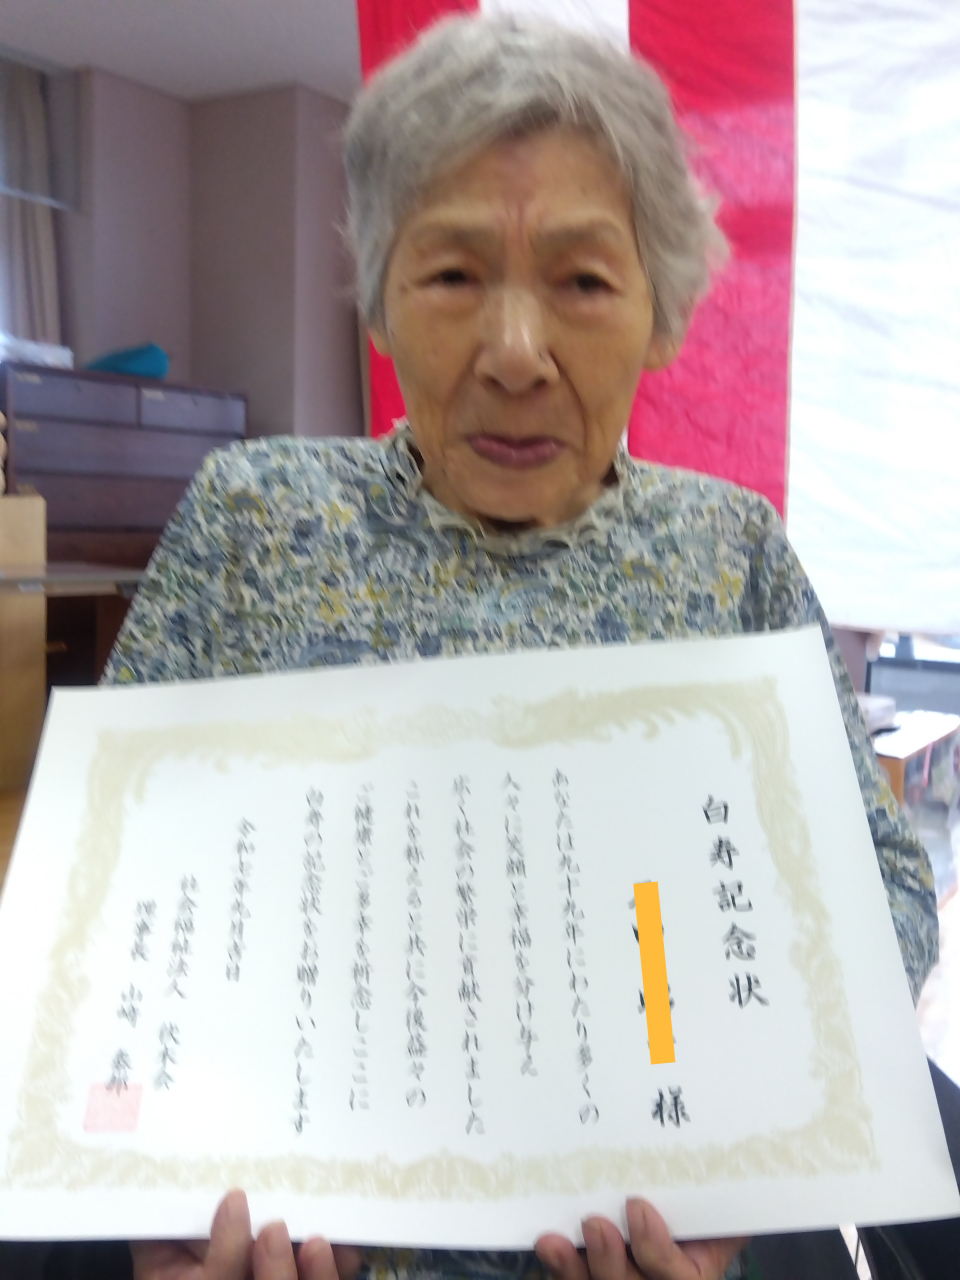 白寿記念状
様
あなたは九十九年にわたり多くの
人々に笑顔と幸福を分け与え
広く社会の繁栄に貢献されました
これを称えると共に今後益々の
ご健康とご多幸を祈念しここに
白寿の記念状をお贈りいたします
令和七年九月
社会福祉法人
理事長 山崎